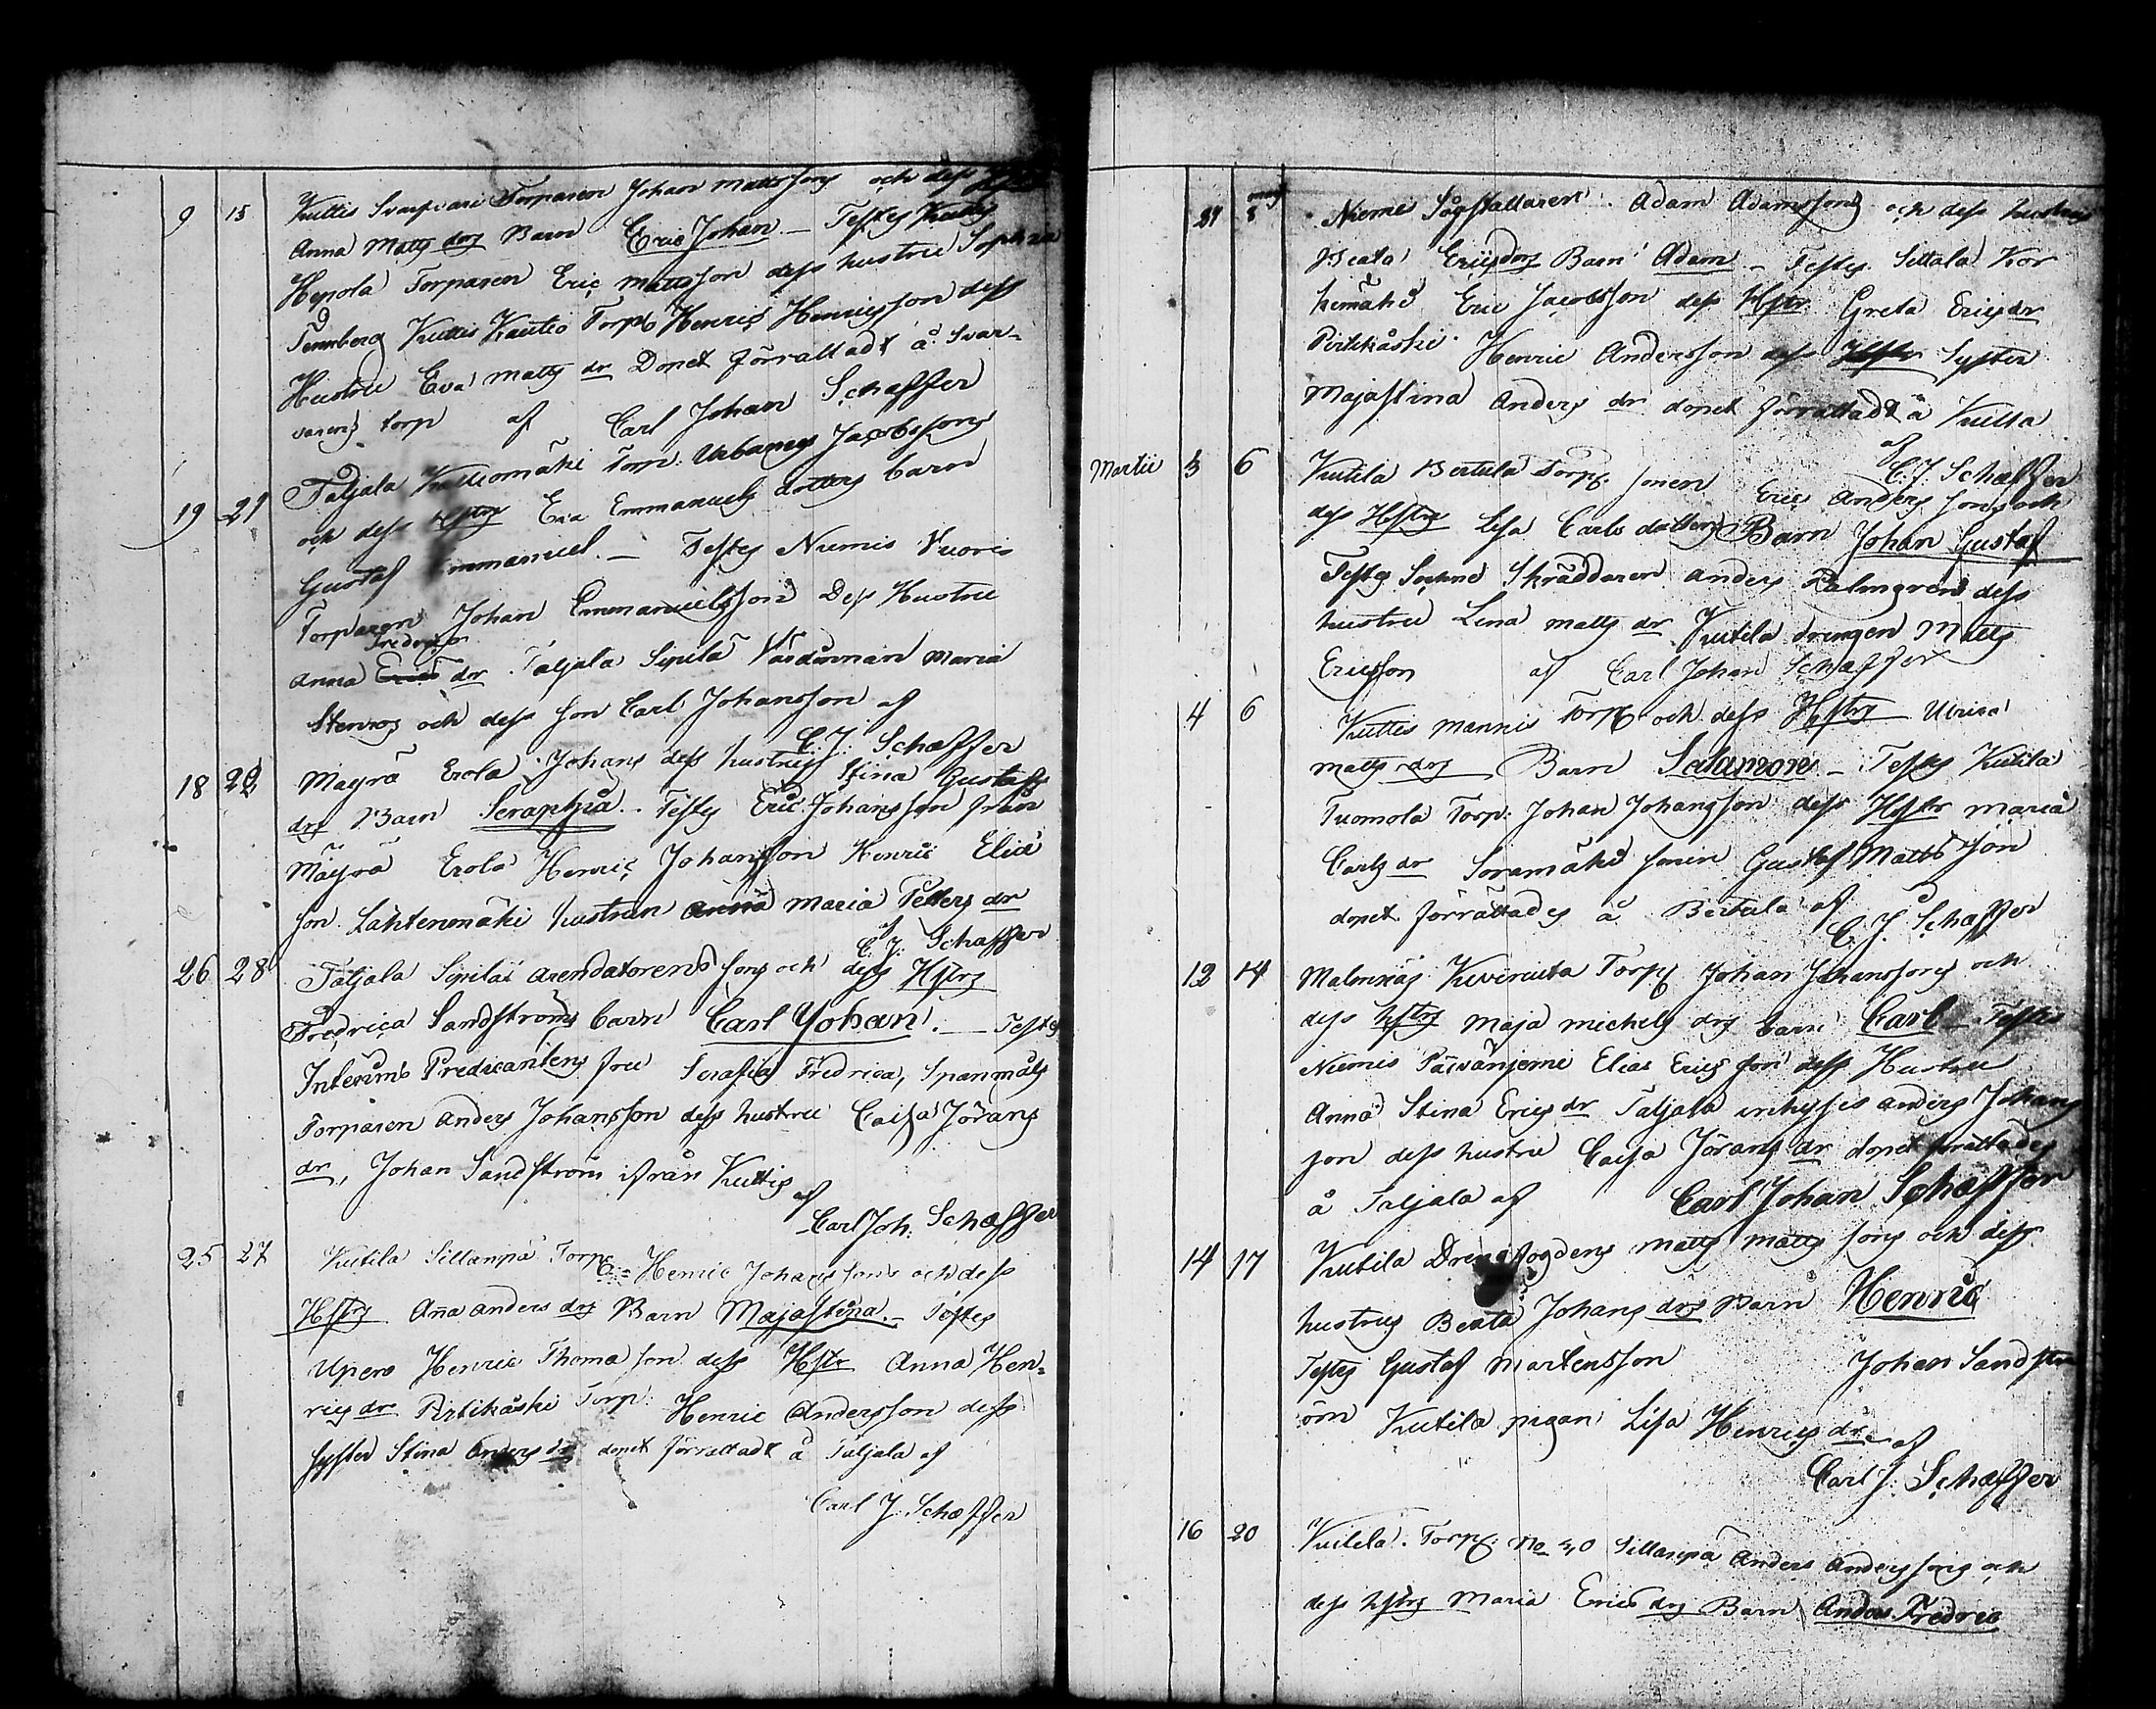 9 15 Kuttis Svarfvari Torparen Johan Mattssons och dess Hstrs
Anna Matts drs Barn Eric Johan — Testes Kuttis
Hepola Torparen Eric Mattsson dess hustru Sophia
Tennberg Kuttis Kautio Torp. Henric Henricsson dess
Hustru Eva Matts dr Dopet förrättadt å Svar-
varens torp af Carl Johan Schæffer
19 21 Taljala Kalliomäki Torp: Urbanus Jacobssons
och dess Hstrs Eva Emmanuels dotters barn
Gustaf Emmanuel. — Testes Niemis Vuoris
Torparen Johan Emmanuelsson Dess Hustru
Fredrics
Anna Erics dr Taljala Sipilä Värdinnan Maria
Stenros och dess son Carl Johansson af
C: J: Schæffer
18 22 Mäyrä Erola Johans dess hustrus Stina Gustafs
drs Barn Seraphia. Testes Eric Johansson från
Mäyrä Erola Henric Johansson Henric Elias
son Lähtenmäki hustrun Anna Maria Petters dr
af
C. J: Schæffer
26 28 Taljala Sipilä arendatorens sons och dess Hstrs
Fredrica Sandströms barn Carl Johan. — Testes
Interims Predicantens fru Serafia Fredrica, Spanmåls
Torparen Anders Johansson dess hustru Caisa Jörans
dr, Johan Sandström ifrån Kuttis
af
Carl Joh: Schæffer
25 27 Kutila Sillanpä Torp. Henric Johanssons och dess
Hstrs Anna Anders drs Barn Maja Stina. — Testes
Upero Henric Thomasson dess Hstr Anna Hen-
rics dr Pirtikåski Torp: Henric Andersson dess
syster Stina Anders dr dopet förrättadt å Taljala af
Carl J: Schæffer
Nieme Sågställaren Adam Adamssons och dess hustrus
Beata Erics drs Barn Adam — Testes Sittala Kor
kemäki Eric Jacobsson dess Hstr Greta Erics dr
Pirtikåski Henric Andersson dess Hstr Syster
Maja Stina Anders dr dopet förrättadt å Kutila
af
C: J. Schæffer
Martii 3 6 Kutila Bertula Torp. sonen Eric Anders sons och
dess Hstrs Lisa Carls dotters Barn Johan Gustaf
Testes Sockne Skräddaren Anders Palmgren dess
hustru Lena Matts dr Kutila drengen Matts
Ericsson af Carl Johan Schæffer
4 6 Kuttis Mannis Torp. och dess Hstrs Ulrica
Matts drs Barn Salamon — Testes Kutila
Tuomola Torp: Johan Johansson dess Hstr Maria
Carls dr Soramäki sonen Gustaf Matts son
dopet förrättades å Bertula af
C. J. Schæffer
12 14 Malmnäs Torp. Johan Johanssons och
dess hstrs Maja Michels drs barn Carl — Testes
Niemis Päivänjemi Elias Erics son dess Hustru
Anna Stina Erics dr Taljala inhyses Anders Johans
son dess hustru Caisa Jörans dr dopet förättades
å Taljala af Carl Johan Schæffer
14 17 Kutila Drengfogdens Matts Matts sons och dess
hustrus Beata Johans drs Barn Henric
Testes Gustaf Mårtensson Johan Sandstr
öm Kutila pigan Lisa Henrics dr af
Carl J. Schæffer
16 20 Kutila Torp. No Sillanpä Anders Anderssons och
dess hstrs Maria Erics drs Barn Anders Fredric